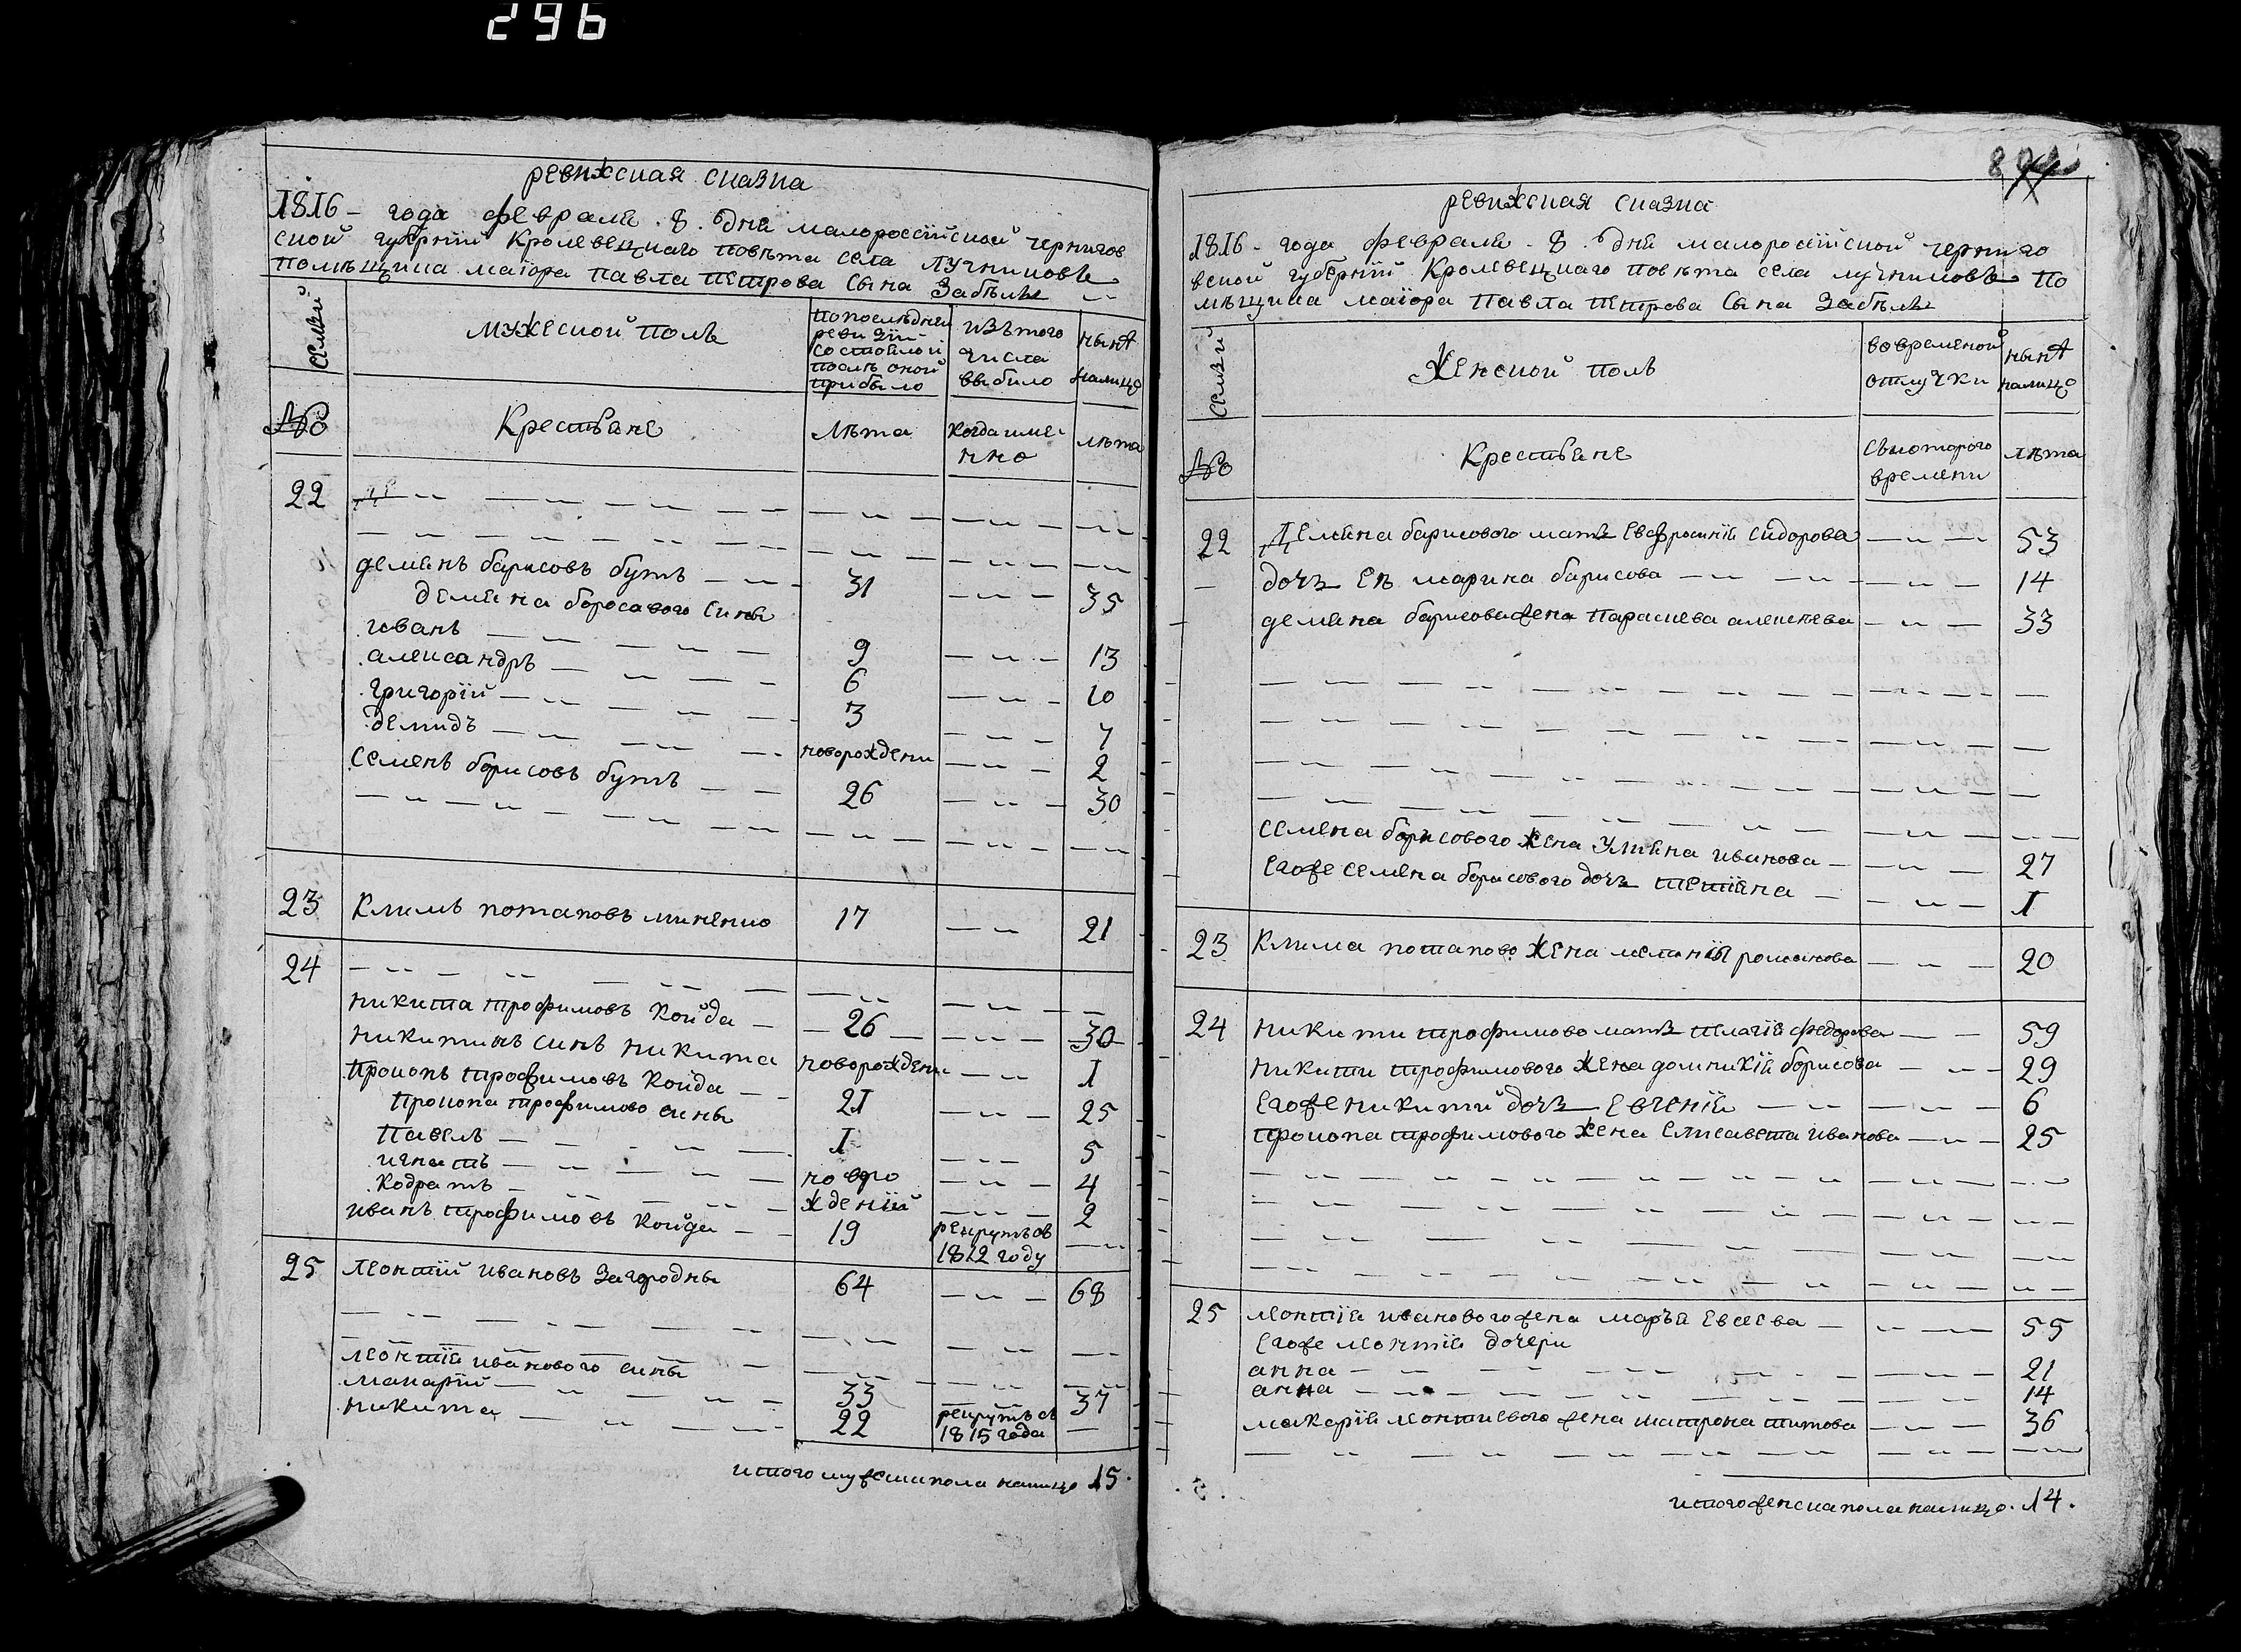 296
ревижская сказка
1816 – года февраля . 8 . дня малороссїйской чернигов
ской губернїи Кролевецкаго повѣта села Лучниковъ
помѣщика маїора Павла Петрова сына Забѣлы
семьи
мужеской полъ
по последнеи
ревизїи
состояло и
послѣ оной
прибыло
изъ того
числа
выбило
нынѣ
налицо
№
Крестьяне
лѣта
когда име
нно
лѣта
22
демянъ барисовъ бутъ 31 35
демяна борисавого сины
иванъ 9 13
александръ 6 10
григорїй 3 7
демидъ новорождени 2
семенъ борисовъ бутъ 26 30
23 Климъ потаповъ миненко 17 21
24
никита трофимовъ койда 26 30
никитинъ синъ никита новорождени 1
прокопъ трофимовъ койда 21 25
прокопа трофимово сины
павелъ 1 5
игнатъ новро 4
кодратъ жденїй 2
иванъ трофимовъ койда 19 рекрутъ ов
1812 году
25 леонтїй ивановъ загородны 64 68
леонтїя иванового сины
макарїй 33 37
никита 22 рекрутъ въ
1815 года
итого мужеска пола налицо 15.
ревижская сказка
1816 – года февраля . 8 . дня малороссїйской черниго
вской губернїй Кролевецкаго повѣта села лучниковъ по
мѣщика маїора Павла Петрова сына Забѣлы
семьи
женской полъ
во временой
отлучки
нынѣ
налицо
№
Крестьяне
съ которого
времени
лѣта
22 демяна барисового мать евфросинїя сидорова 53
дочь еѣ марина барисова 14
демяна барисова жена параскева алексеева 33
семена борисового жена улияна иванова 27
егоже семена борисового дочь тетїяна 1
23 Клима потапово жена меланїя романова 20
24 никити трофимово мать пелагїя федорова 59
никити трофимового жена домникїя борисова 29
егоже никитий дочь евгенїя 6
прокопа трофимового жена елисавета иванова 25
25 леонтїя иванового жена марья евсеева 55
егоже леонтїя дочери
анна 21
анна 14
макарїя леонтиевого жена матрона титова 36
итого женска пола налицо . 14 .